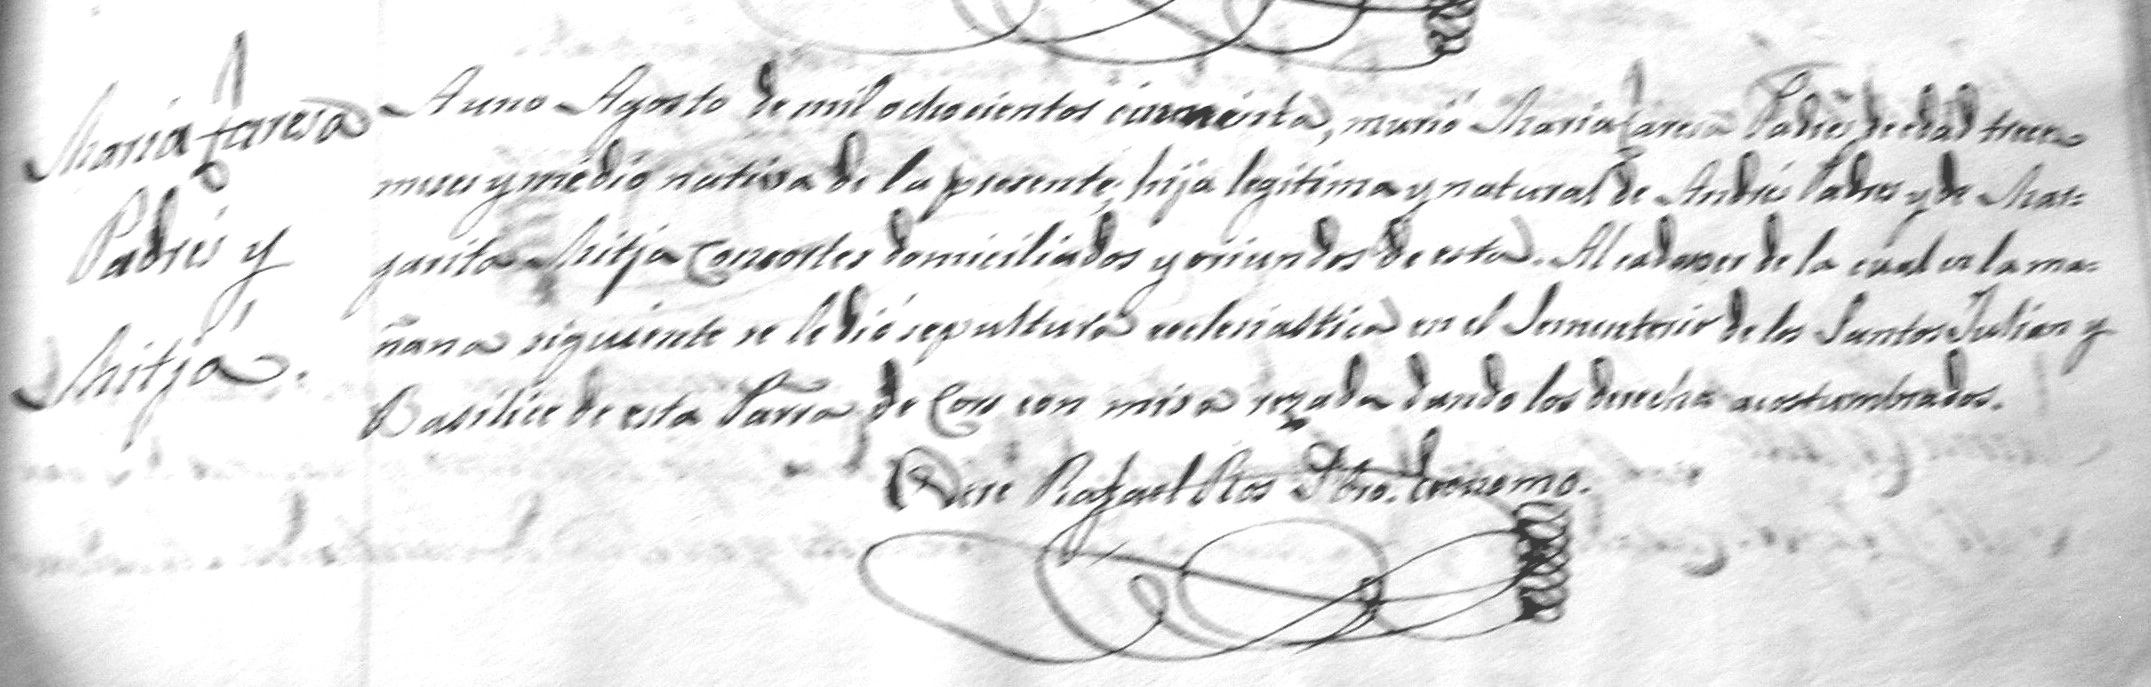 Maria Taresa
Padrés y
Mitjá.
A uno Agosto de mil ochocientos cincuenta, murió Maria Taresa Padrés de edad trece
meses y medio nativa de la presente, hija legitima y natural de Andrés Padres y de Mar=
garita Mitja Consortes domiciliados y oriundos de esta. Al cadaver de la cual en la ma=
ñana siguiente se le dió sepultura eclesiastica en el Sementerio de los Santos Julian y
Basilice de esta Parr.a de Cors con misa rezada dando los derechos acostumbrados.
Rafael Ros Pbro. Economo.